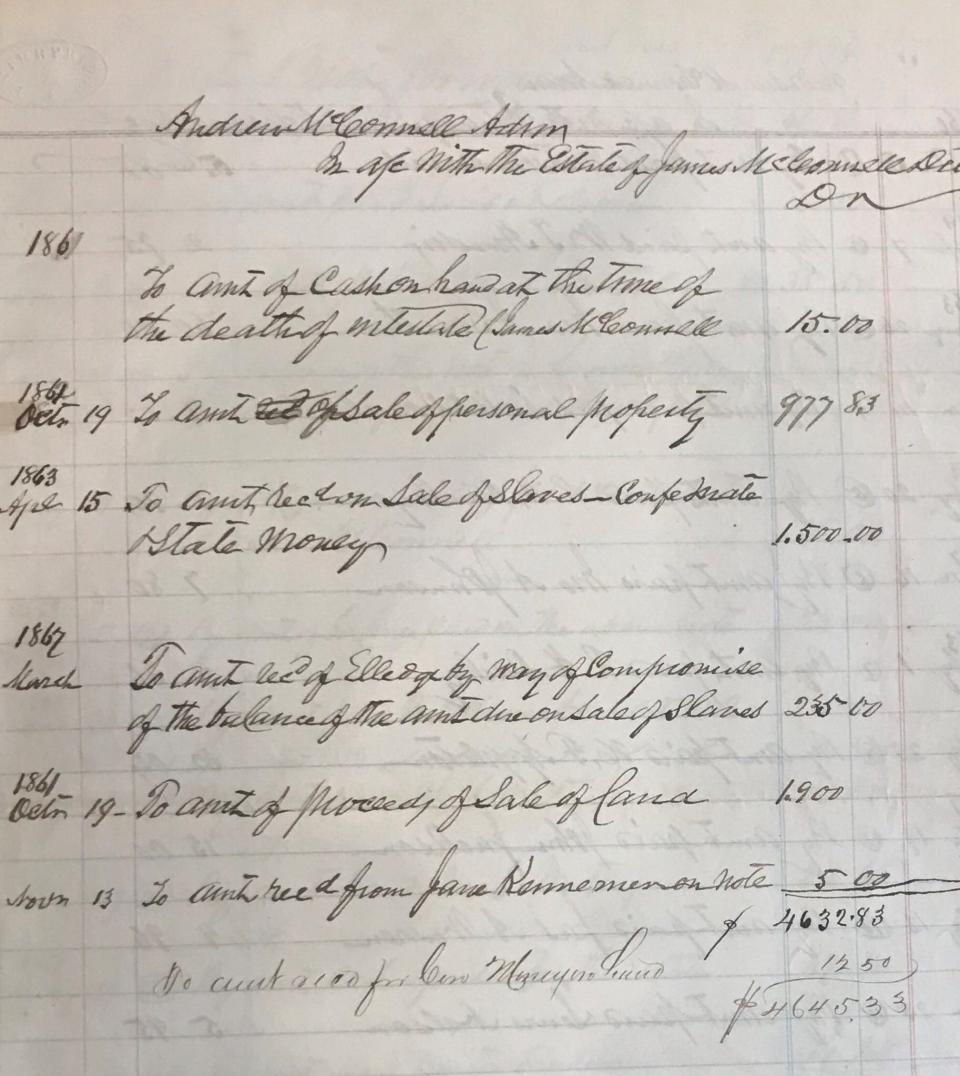 Andrew McConnell Admr
In a/c With the Estate of James McConnell
Dr
1861
To amt of Cash on hand at the time of
the death of intestate (James McConnell 15.00
1861
Octr 19 To amt of Sale of personal property 977 83
1863
Apl 15 To amt recd on Sale of Slaves - Confederate
& State Money 1.500.00
1867
March To amt recd of by way of Compromise
of the balance of the amt due on Sale of Slaves 235 00
1861
Octr 19 - To amt of proceeds of Sale of Land 1.900
Novr 13 To amt recd from Jane Kennemer on note 5 00
$ 4632.83
To amt recd for 12 50
$ 4645.33